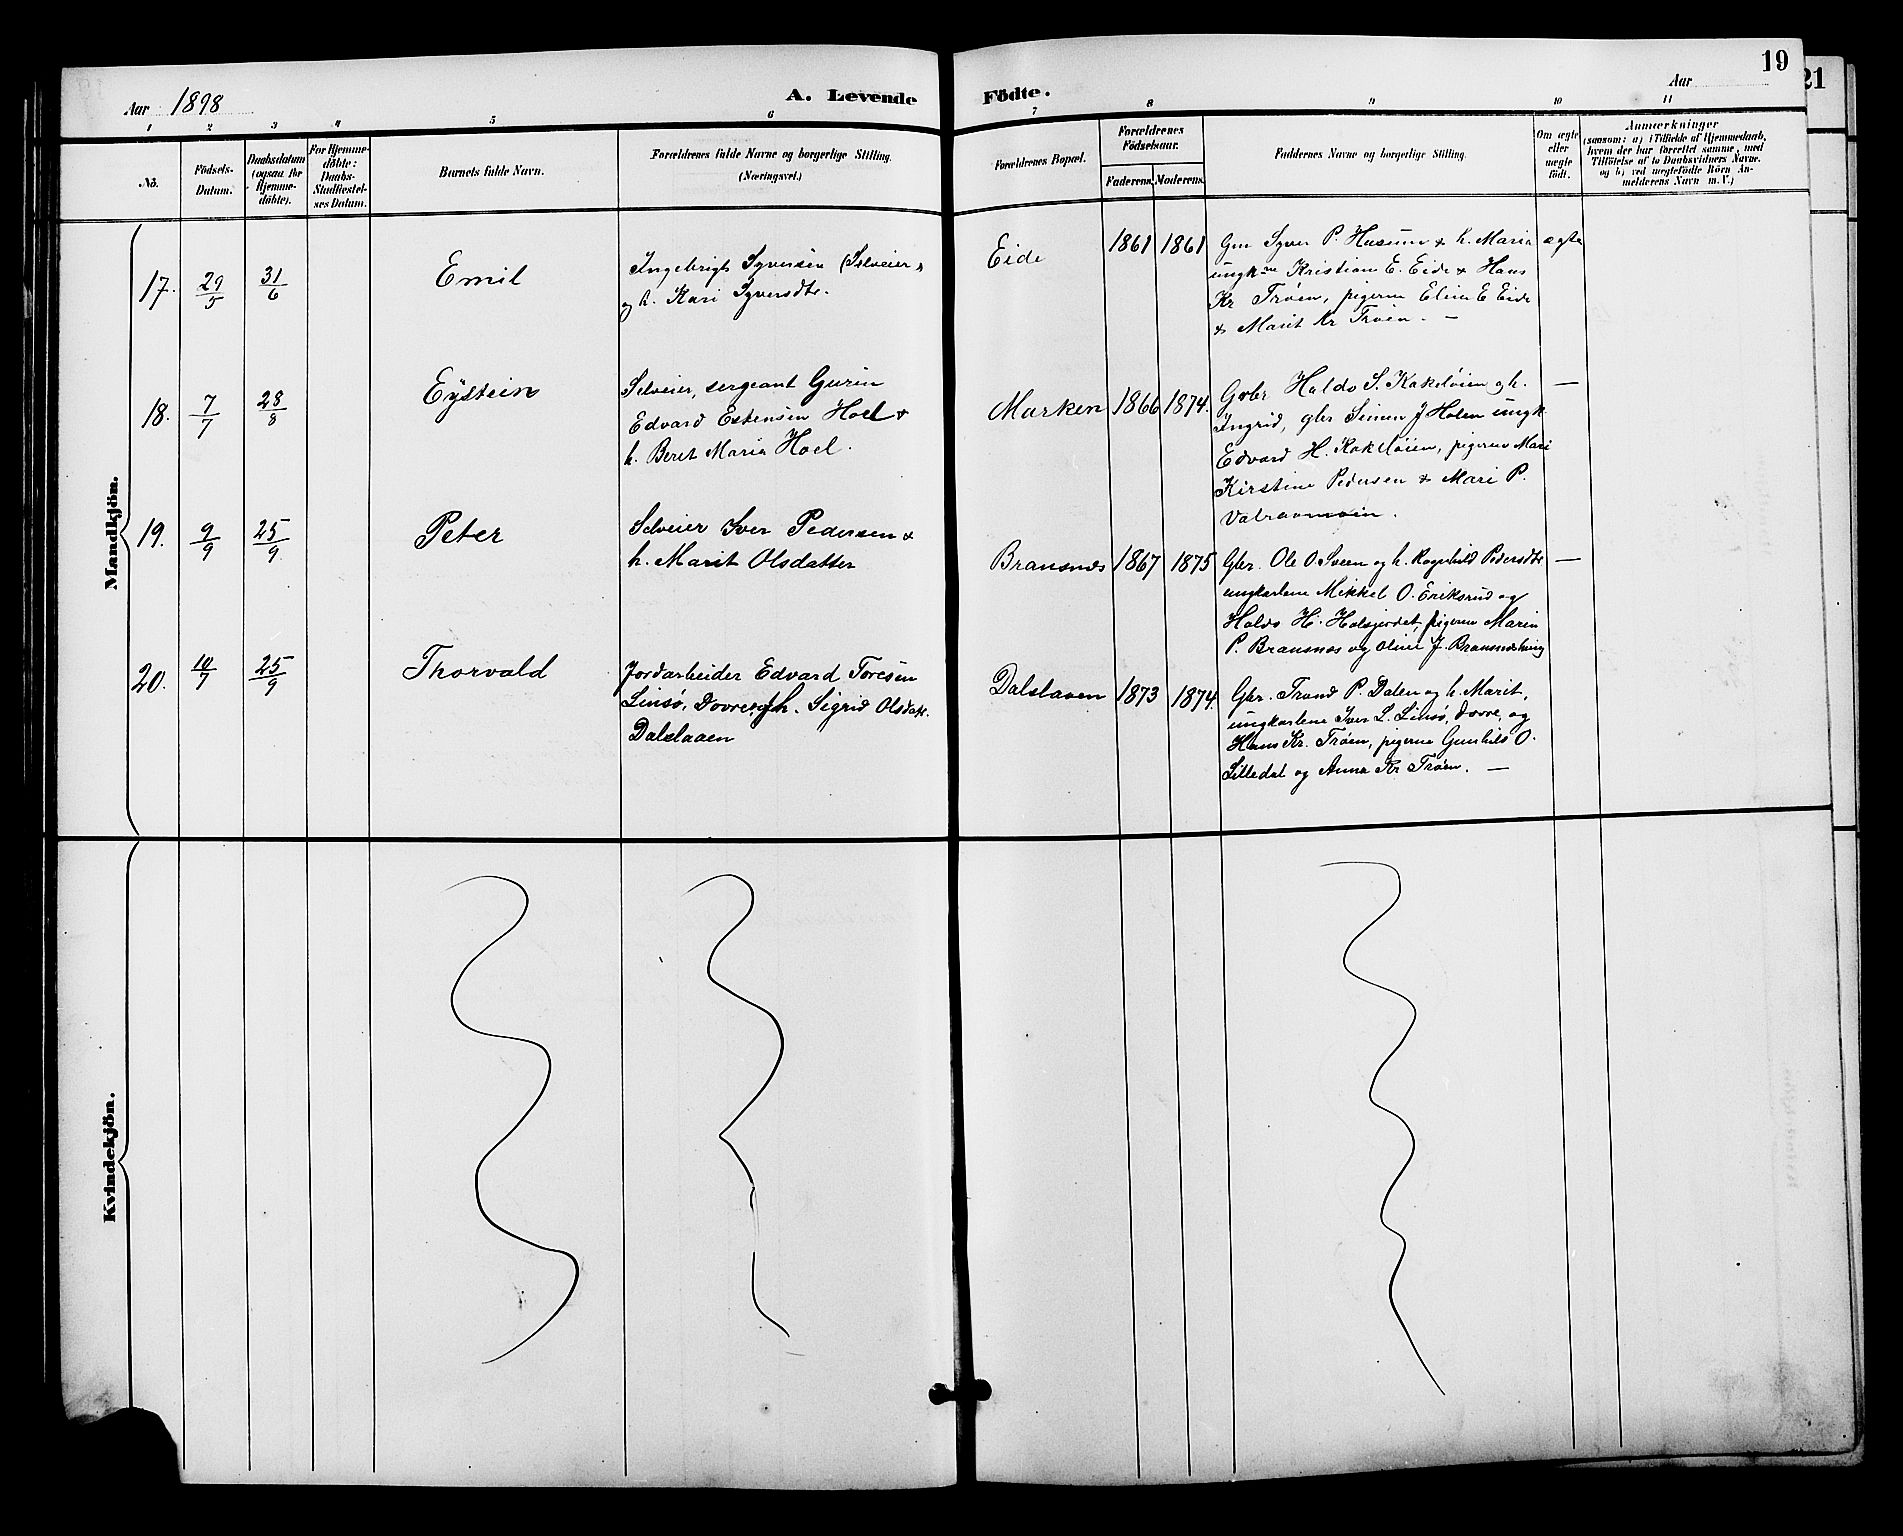 19
21
Aar 1898
A. Levende
Födte.
Aar
1 2 3 4 5 6 7 8 9 10 11
No.
Födsels-
Datum.
Daabsdatum
(ogsaa for
Hjemme-
döbte).
For Hjemme-
döbte:
Daabs-
Stadfæstel-
ses Datum.
Barnets fulde Navn.
Forældrenes fulde Navne og borgerlige Stilling.
(Næringsvei.)
Forældrenes Bopæl.
Forældrenes
Födselsaar.
Faderens.
Moderens.
Faddernes Navne og borgerlige Stilling.
Om ægte
eller
uægte
födt.
Anmærkninger
(saasom: a) i Tilfælde af Hjemmedaab,
hvem der har forrettet samme, med
Tilföielse af to Daabsvidners Navne.
og b) ved uægtefödte Börn An-
melderens Navn m. V.)
Mandkjön.
17.
29/5
31/6
Emil
Ingebrigt Syversen (Selveier)
og h. Kari Syversdtr.
Eide
1861
1861
Gm Syver P. Husum & h. Maria
ungk.ne Kristian E. Eide & Hans
Kr Trøen, pigerne Eline E Eide
& Marit Kr Trøen. —
ægte
18.
7/7
28/8
Eystein
Selveier, sergeant Gurin
Edvard Estensen Hoel &
h. Beret Maria Hoel.
Marken
1866
1874.
Gbr Haldo S. Kakeløien og h.
Ingrid, gbr Simen J Holen ungk
Edvard H. Kakeløien, pigerne Mari
Kirstine Pedersen & Mari P.
Valraamoin.
—
19.
9/9
25/9
Peter
Selveier Iver Pedersen &
h. Marit Olsdatter
Bransnes
1867
1875
Gbr. Ole O. Sveen og h. Ragnhild Pedersdtr
ungkarlene Mikkel O. Eriksrud og
Haldo H. Holsjordet, pigerne Marin
P. Bransnes og Oline J. Bransneshaug
—
20.
10/7
25/9
Thorvald
Jordarbeider Edvard Toresen
Linsø, Dovre, og h. Sigrid Olsdatt.
Dalslaaen
Dalslaaen
1873
1874.
Gbr. Trond P. Dalen og h. Marit,
ungkarlene Iver L. Linsø, Dovre, og
Hans Kr. Trøen, pigerne Gunhild O.
Lilledal og Anna Kr Trøen. —
Kvindekjön.